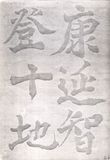 康延智
登十地